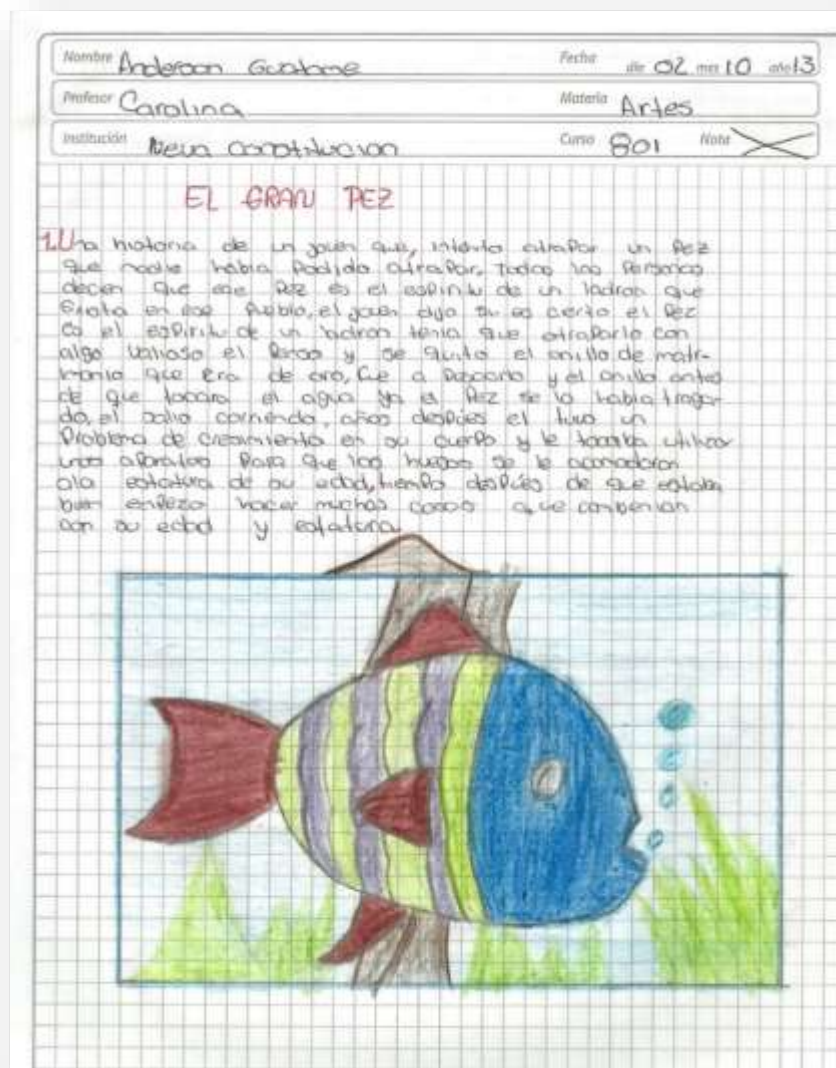 Nombre Anderson Guatame Fecha día 02 mes 10 año 13
Profesor Carolina Materia Artes
Institución Nueva constitucion Curso 801 Nota
EL GRAN PEZ
1. Una historia de un joven que, intento atrapar un Pez
que nadie habia Podido atrapar, Todas las Personas
decen que ese Pez es el espiritu de un ladron que
en ese Pueblo, el joven dijo si es cierto el Pez
es el espiritu de un ladron tenia que atraparlo con
algo valioso el Penso y se quito el anillo de matri-
monio que era de oro, fue a Pescarlo y el anillo antes
de que tocara el agua ya el Pez se lo habia traga-
do, el salio corriendo, años despues el tuvo un
Problema de crecimiento en su cuerpo y le tocaba utilizar
unos aparatos Para que los huesos se le acomodaran
ala estatura de su edad, tiempo despues de que estaba
bien enpezo hacer muchas cosas que conbenian
con su edad y estatura